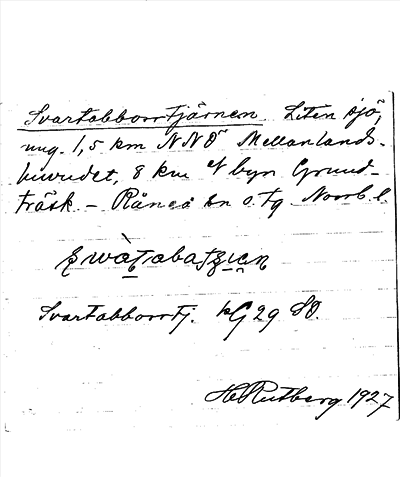 Svartabborrtjärnen. Liten sjö,
ung. 1,5 km NNÖ Mellanlands-
huvudet, 8 km N byn Grund-
träsk. – Råneå sn o. tg Norrb. l.
Svartabborrtj. kG 29 SO.
H Rutberg 1927